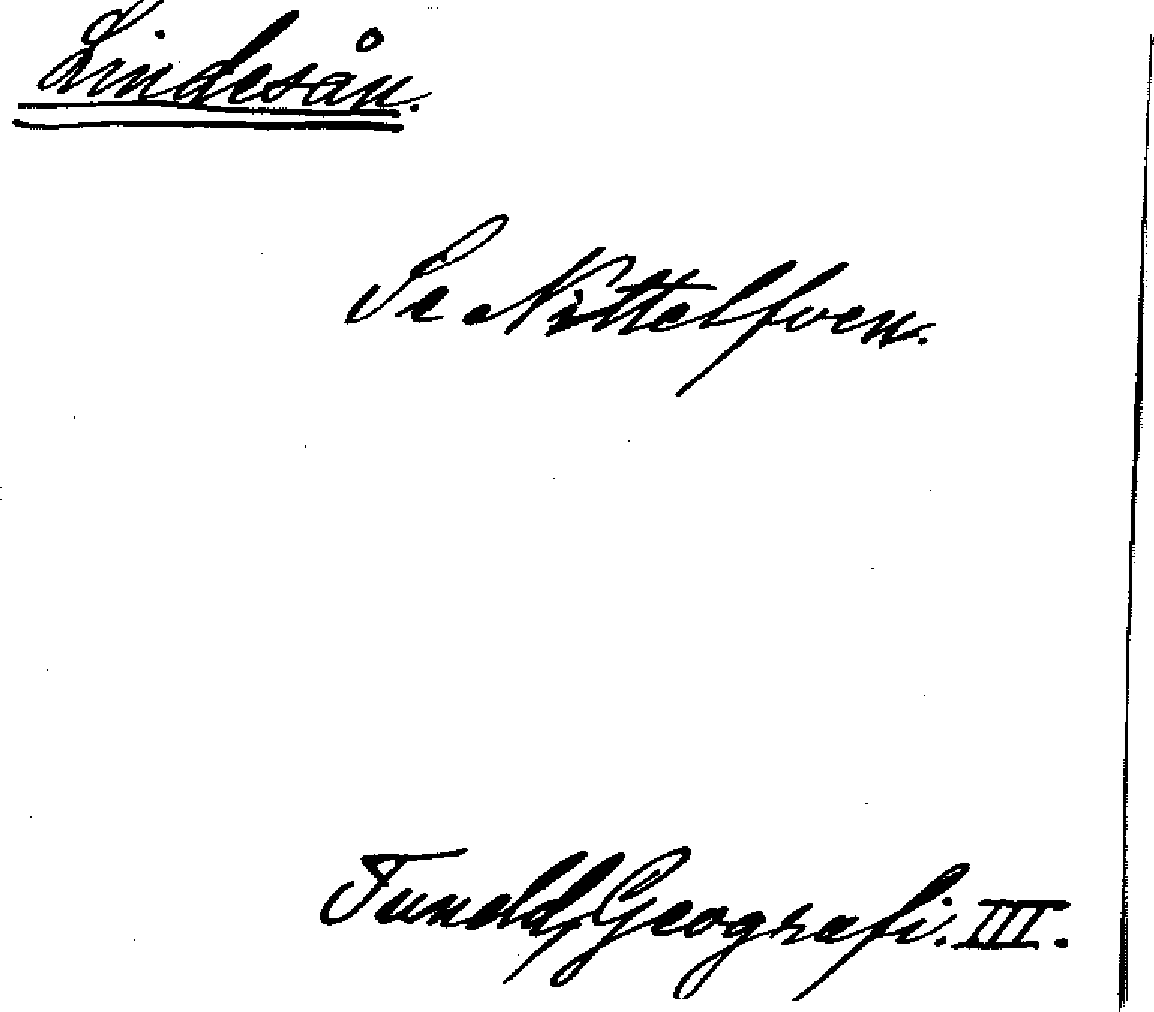 Lindesån.
Se Nittelfven.
Tuneld, Geografi. III.